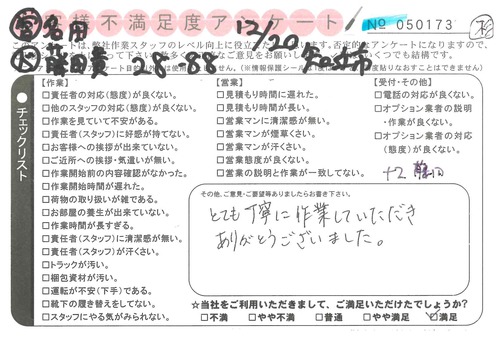 お客様不満足度アンケート
No 050173
12/20
28-88
このアンケートは、弊社作業スタッフのレベル向上に役立
チェックリスト
【作業】
□責任者の対応(態度)が良くない。
□他のスタッフの対応(態度)が良くない。
□作業を見ていて不安がある。
□責任者(スタッフ)に好感が持てない。
□お客様への挨拶が出来ていない。
□ご近所への挨拶・気遣いが無い。
□作業開始前の内容確認がなかった。
□作業開始時間が遅れた。
□荷物の取り扱いが雑である。
□お部屋の養生が出来ていない。
□作業時間が長すぎる。
□責任者(スタッフ)に清潔感が無い。
□責任者(スタッフ)が汗くさい。
□トラックが汚い。
□梱包資材が汚い。
□運転が不安(下手)である。
□靴下の履き替えをしてない。
□スタッフにやる気がみられない。
【営業】
□見積もり時間に遅れた。
□見積もり時間が長い。
□営業マンに清潔感が無い。
□営業マンが煙草くさい。
□営業マンが汗くさい。
□営業態度が良くない。
□営業の説明と作業が一致してない。
【受付・その他】
□電話の対応が良くない。
□オプション業者の説明
・作業が良くない。
□オプション業者の対応
(態度)が良くない。
その他、ご意見・ご要望等ありましたらお書き下さい。
とても丁寧に作業していただき
ありがとうございました。
☆当社をご利用いただきまして、ご満足いただけたでしょうか?
□不満 □やや不満 □普通 □やや満足 ☑満足